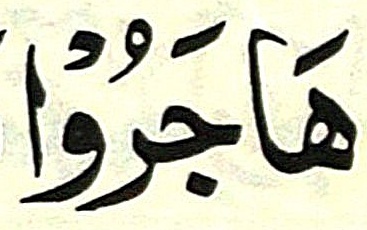 هَاجَرُوْا